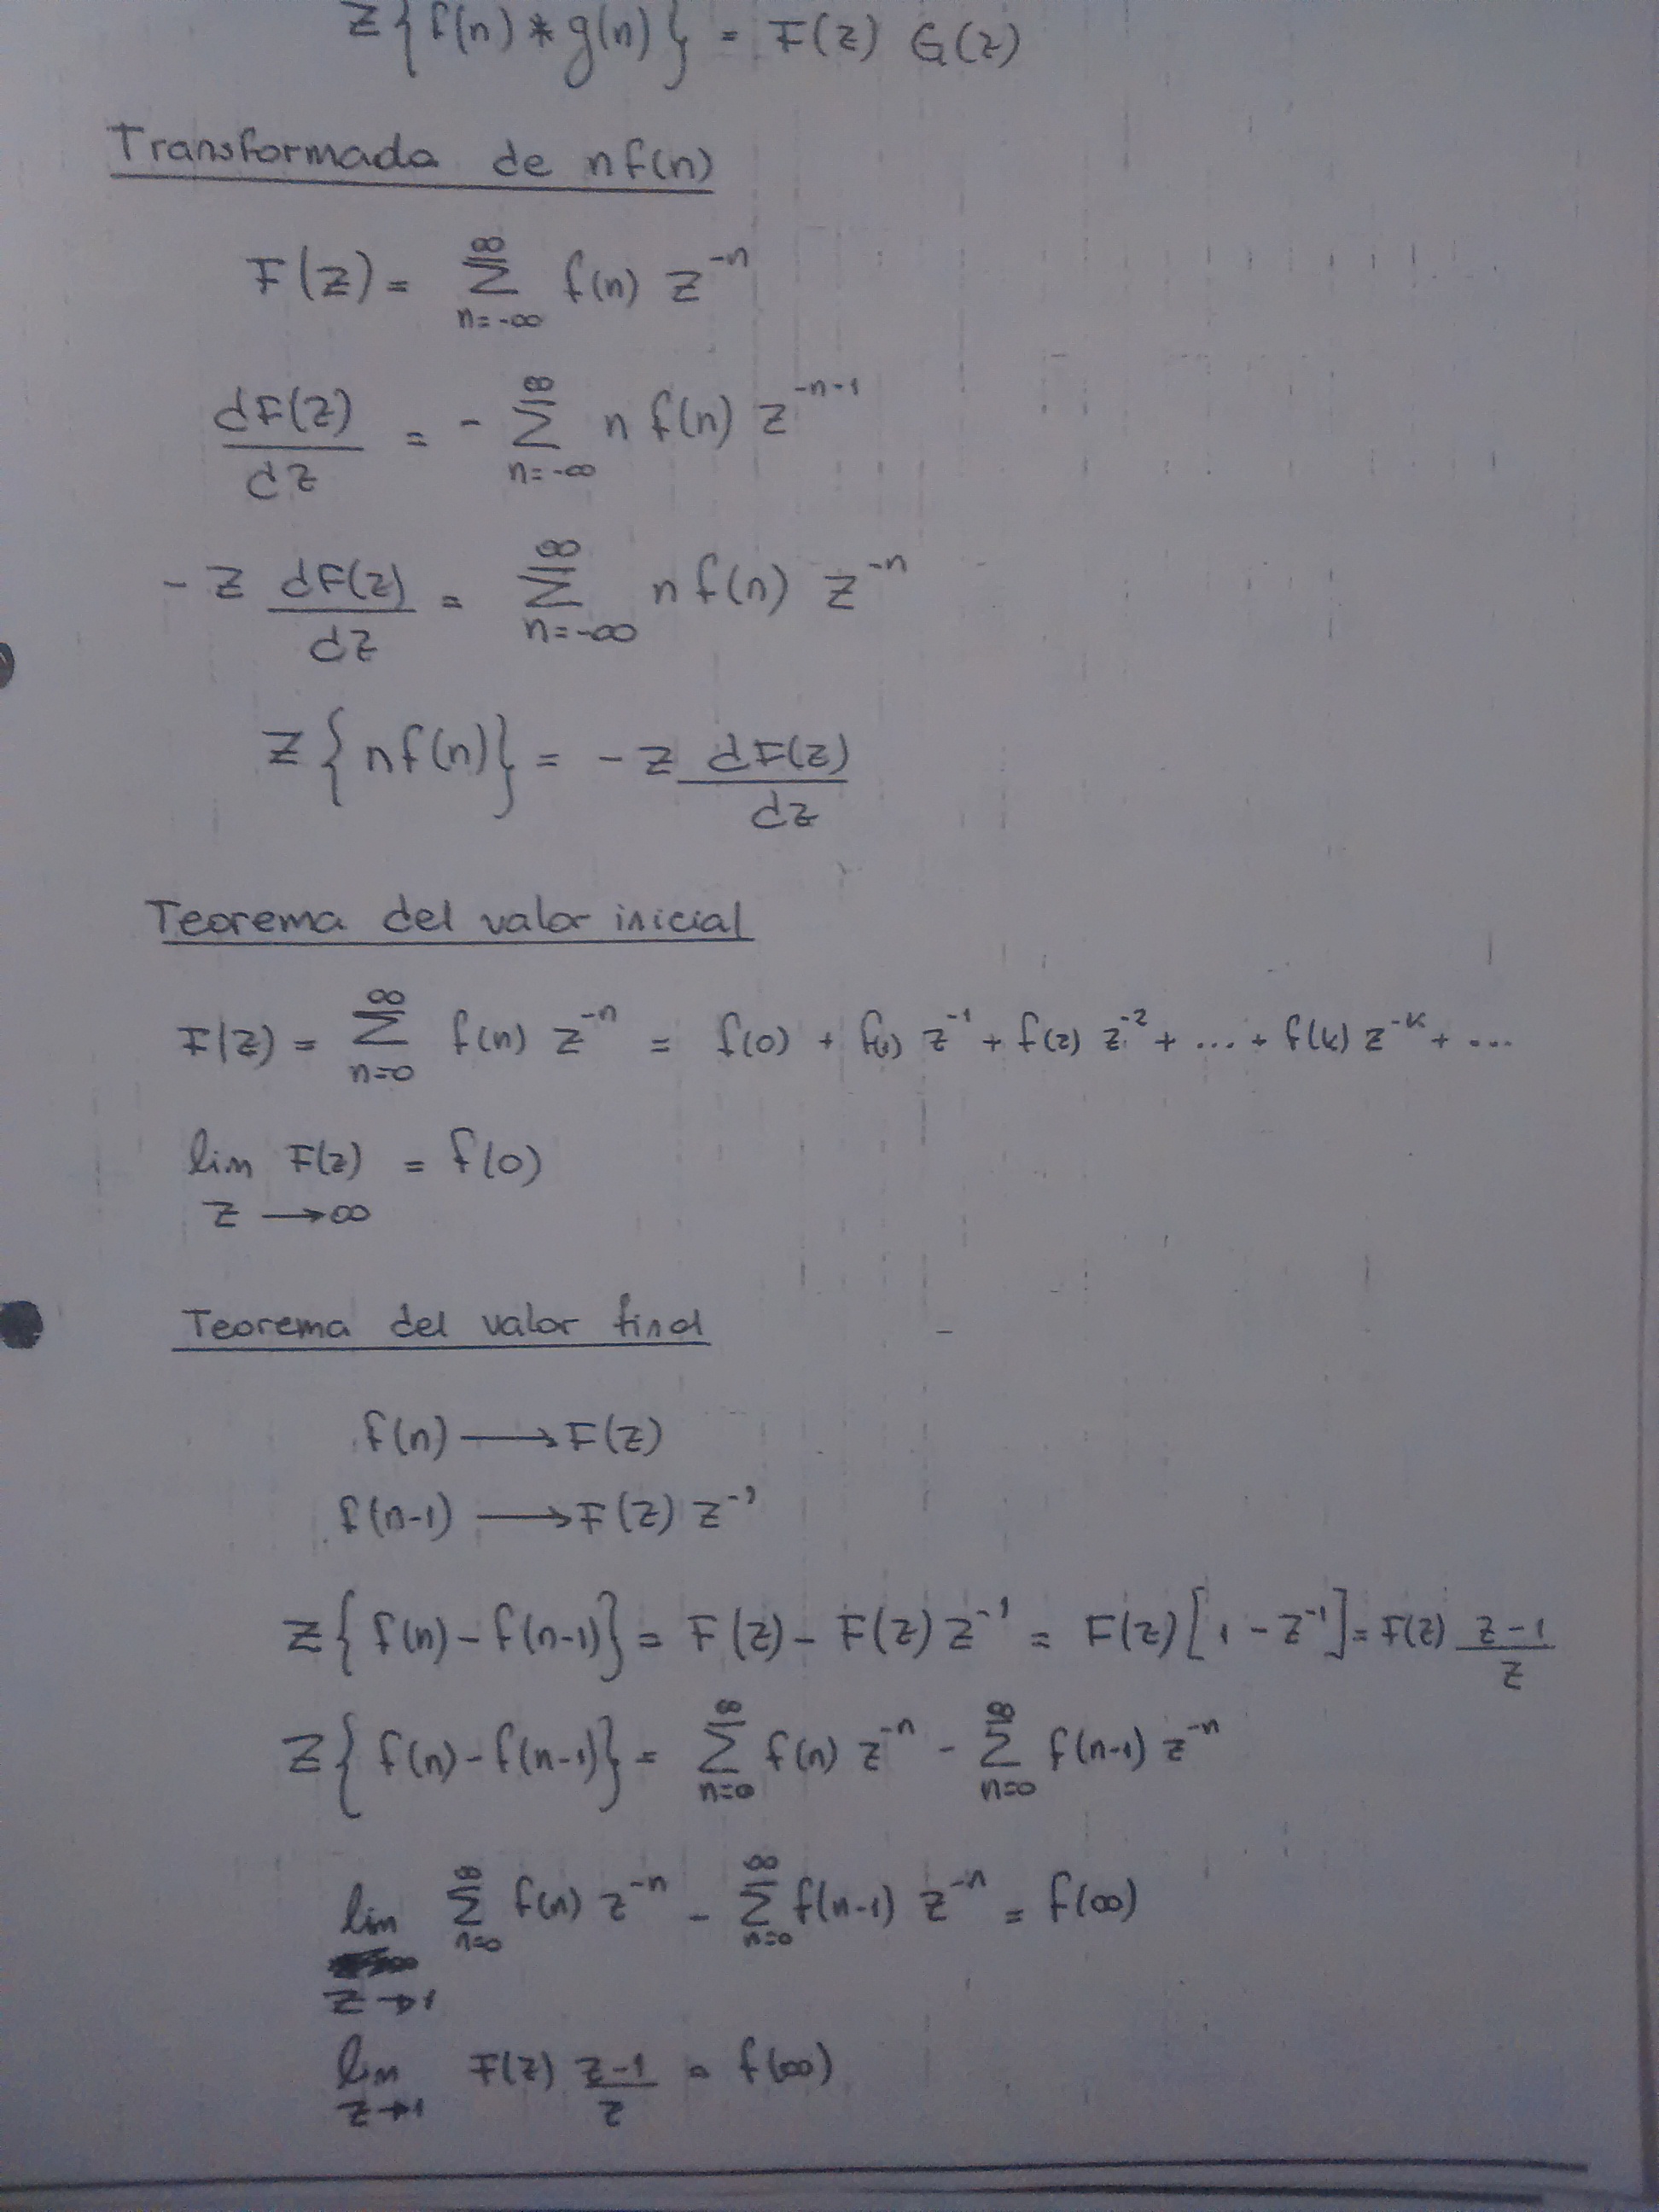 Z{f(n) * g(n)} = F(z) G(z)
Transformada de nf(n)
F(z) = ∑_{n=-∞}^{∞} f(n) z^{-n}
dF(z)/dz = - ∑_{n=-∞}^{∞} n f(n) z^{-n-1}
- z dF(z)/dz = ∑_{n=-∞}^{∞} n f(n) z^{-n}
Z{nf(n)} = - z dF(z)/dz
Teorema del valor inicial
F(z) = ∑_{n=0}^{∞} f(n) z^{-n} = f(0) + f(1) z^{-1} + f(2) z^{-2} + ... + f(k) z^{-k} + ...
lim_{z→∞} F(z) = f(0)
Teorema del valor final
f(n) → F(z)
f(n-1) → F(z) z^{-1}
Z{f(n) - f(n-1)} = F(z) - F(z) z^{-1} = F(z) [1 - z^{-1}] = F(z) (z-1)/z
Z{f(n) - f(n-1)} = ∑_{n=0}^{∞} f(n) z^{-n} - ∑_{n=0}^{∞} f(n-1) z^{-n}
lim_{z→1} ∑_{n=0}^{∞} f(n) z^{-n} - ∑_{n=0}^{∞} f(n-1) z^{-n} = f(∞)
lim_{z→1} F(z) (z-1)/z = f(∞)